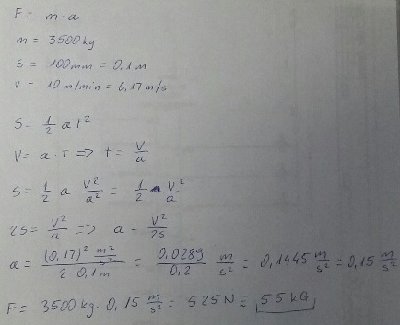 F = m · a
m = 3500 kg
s = 100 mm = 0,1 m
v = 10 m/min = 0,17 m/s
S = 1/2 a t²
V = a · t => t = V/a
S = 1/2 a V²/a² = 1/2 V²/a
2S = V²/a => a = V²/2S
a = (0,17)² m²/s² / 2 0,1m = 0,0289/0,2 m/s² = 0,1445 m/s² = 0,15 m/s²
F = 3500 kg · 0,15 m/s² = 525 N = 55 kG